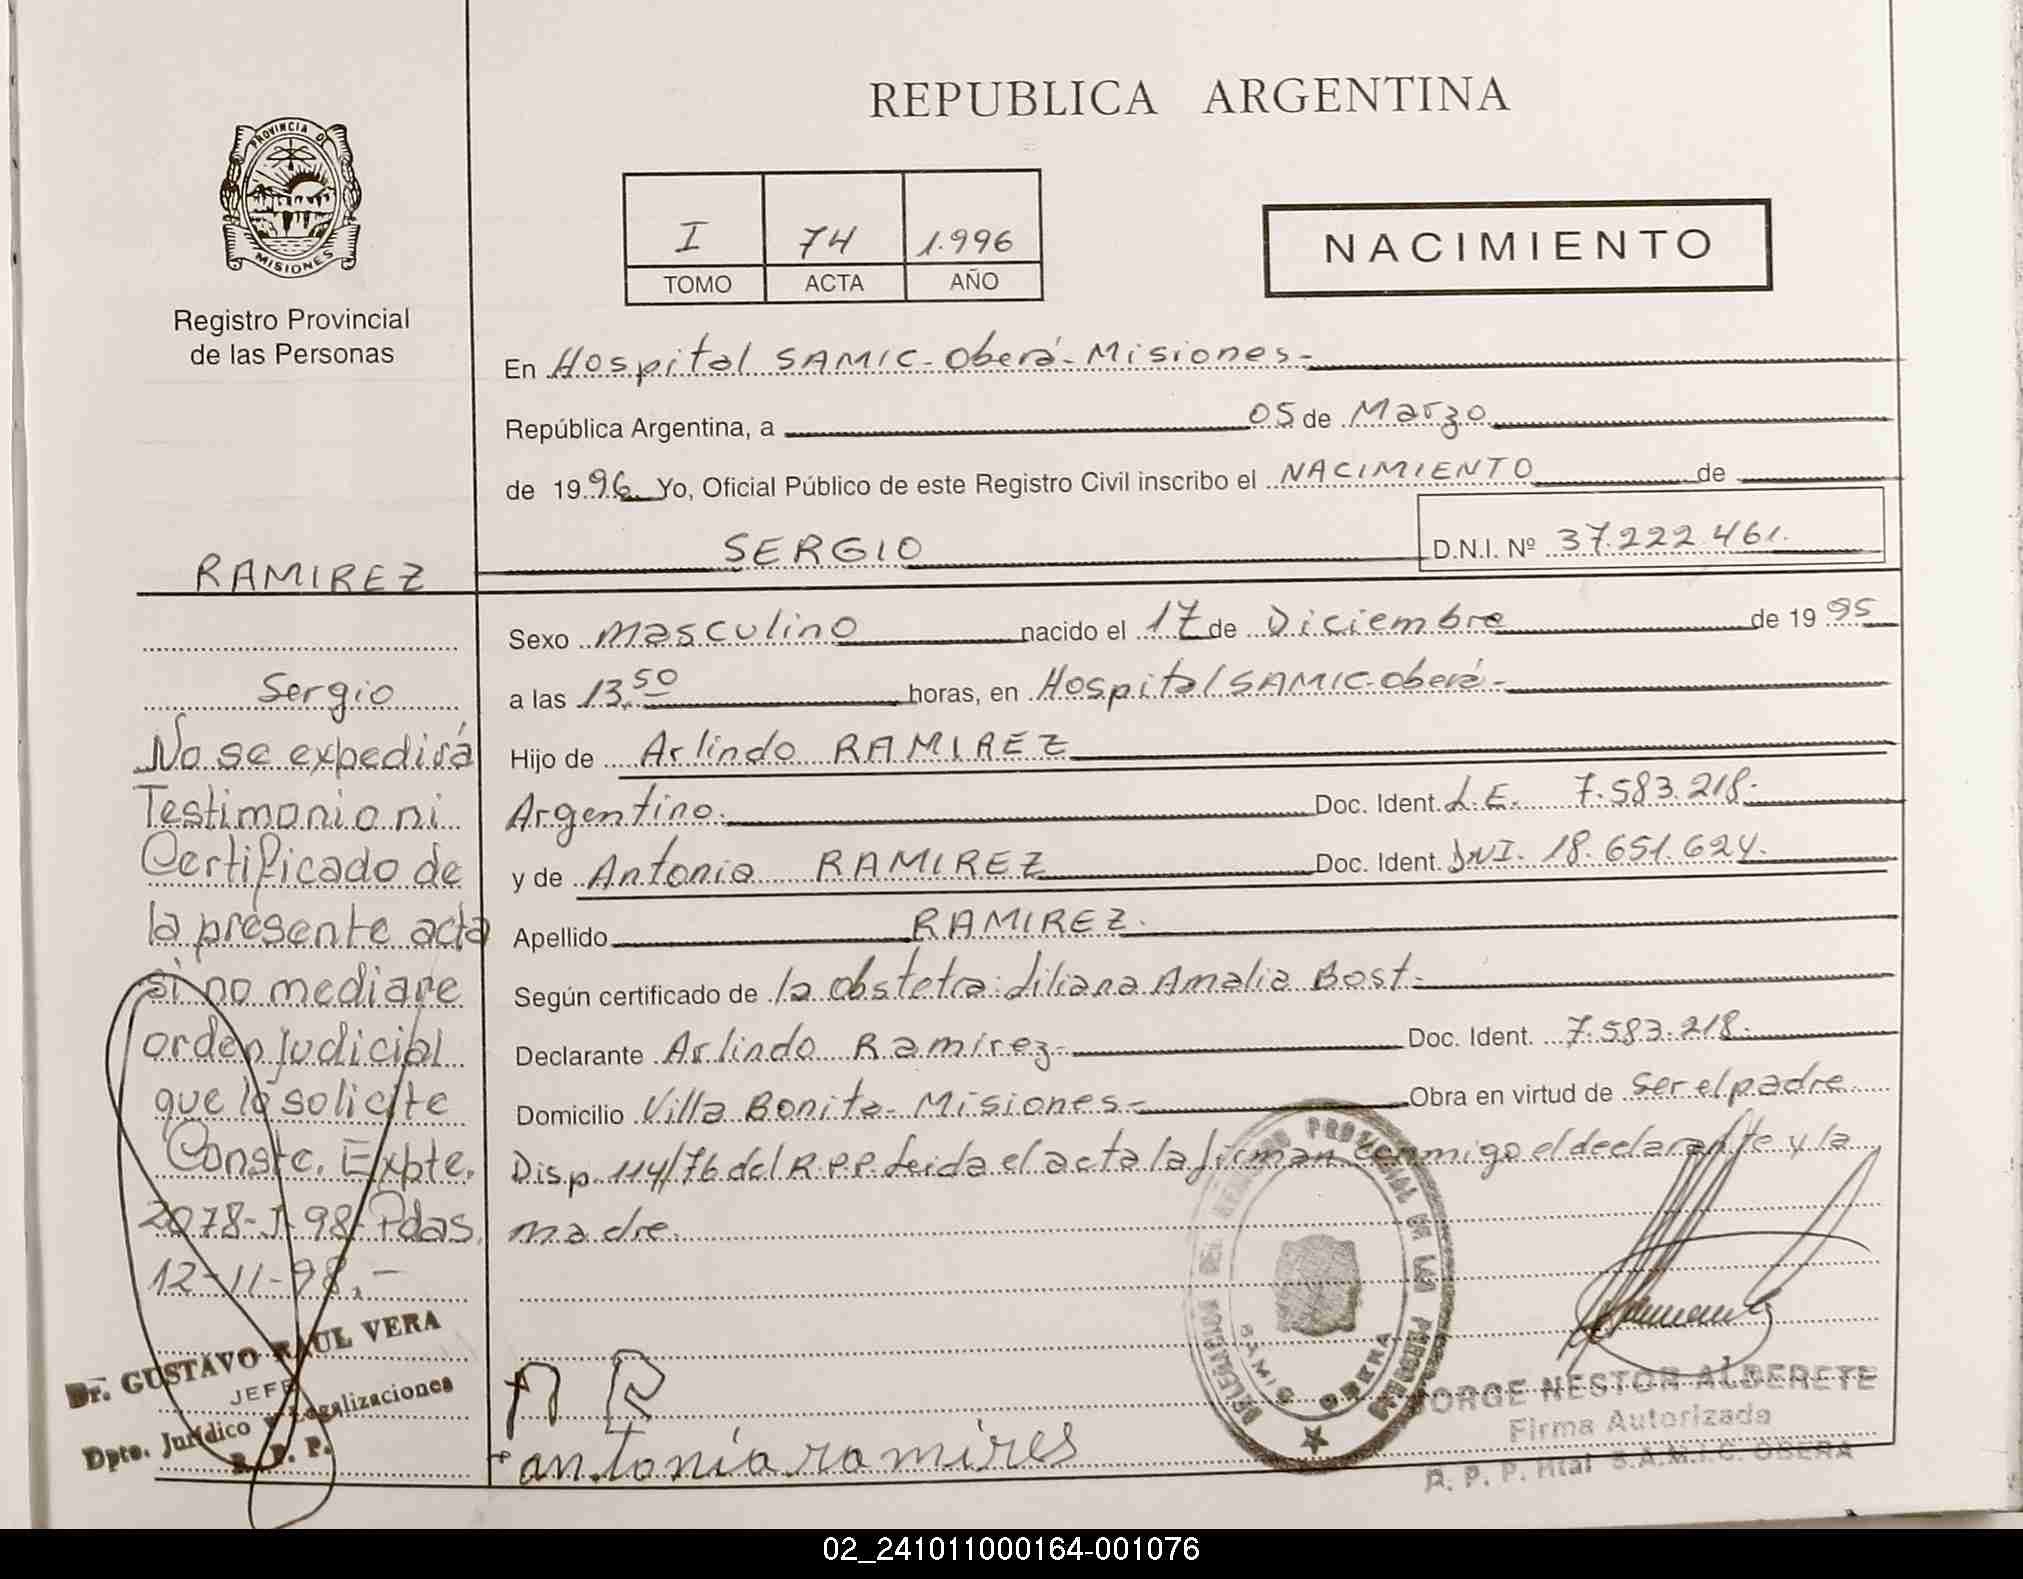 REPUBLICA ARGENTINA
PROVINCIA DE
MISIONES
Registro Provincial
de las Personas
I 74 1.996
TOMO ACTA AÑO
NACIMIENTO
En Hospital SAMIC-Oberá-Misiones-
República Argentina, a 05 de Marzo
de 1996. Yo, Oficial Público de este Registro Civil inscribo el NACIMIENTO de
SERGIO
D.N.I. Nº 37.222.461.
RAMIREZ
Sergio
No se expedirá
Testimonio ni
Certificado de
la presente acta
si no mediare
orden judicial
que lo solicite
Conste. Expte.
2078-J-98-Pdas.
12-11-98.-
Dr. GUSTAVO RAUL VERA
JEFE
Dpto. Jurídico y Legalizaciones
R. P. P.
Sexo Masculino nacido el 17 de Diciembre de 1995
a las 13,50 horas, en Hospital SAMIC-Oberá-
Hijo de Arlindo RAMIREZ
Argentino. Doc. Ident. L.E. 7.583.218-
y de Antonia RAMIREZ Doc. Ident. DNI. 18.651.624.
Apellido RAMIREZ.
Según certificado de la obstetra: Liliana Amalia Bost-
Declarante Arlindo Ramírez- Doc. Ident. 7.583.218-
Domicilio Villa Bonita-Misiones- Obra en virtud de ser el padre
Disp. 114/76 del R.P.P. Leida el acta la firman conmigo el declarante y la
madre.
A R
antonía ramíres
DELEGACION DEL REGISTRO PROVINCIAL DE LAS PERSONAS
SAMIC OBERA
JORGE NESTOR ALDERETE
Firma Autorizada
R. P. P. Htal S.A.M.I.C. OBERA
02_241011000164-001076